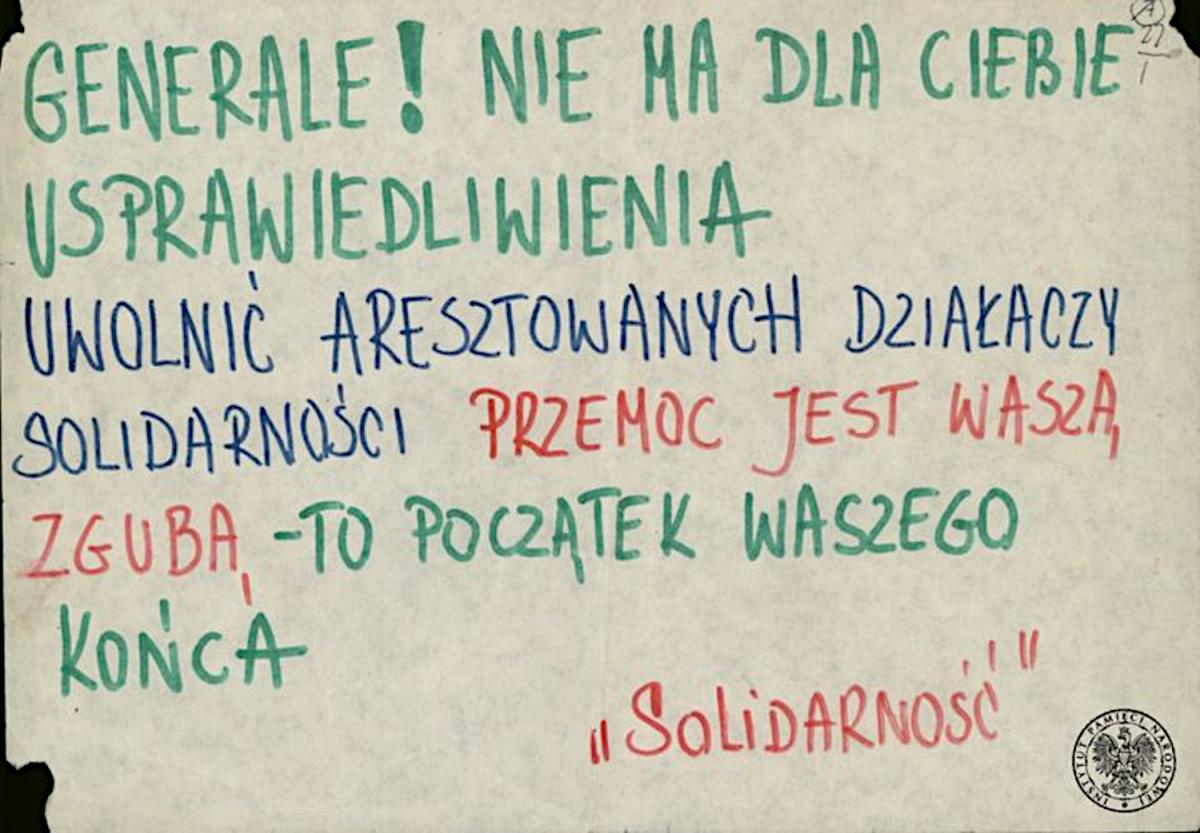 GENERALE! NIE MA DLA CIEBIE
USPRAWIEDLIWIENIA
UWOLNIĆ ARESZTOWANYCH DZIAŁACZY
SOLIDARNOŚCI PRZEMOC JEST WASZĄ
ZGUBĄ -TO POCZĄTEK WASZEGO
KOŃCA
„SOLiDARNOŚĆ"
INSTYTUT PAMIĘCI NARODOWEJ